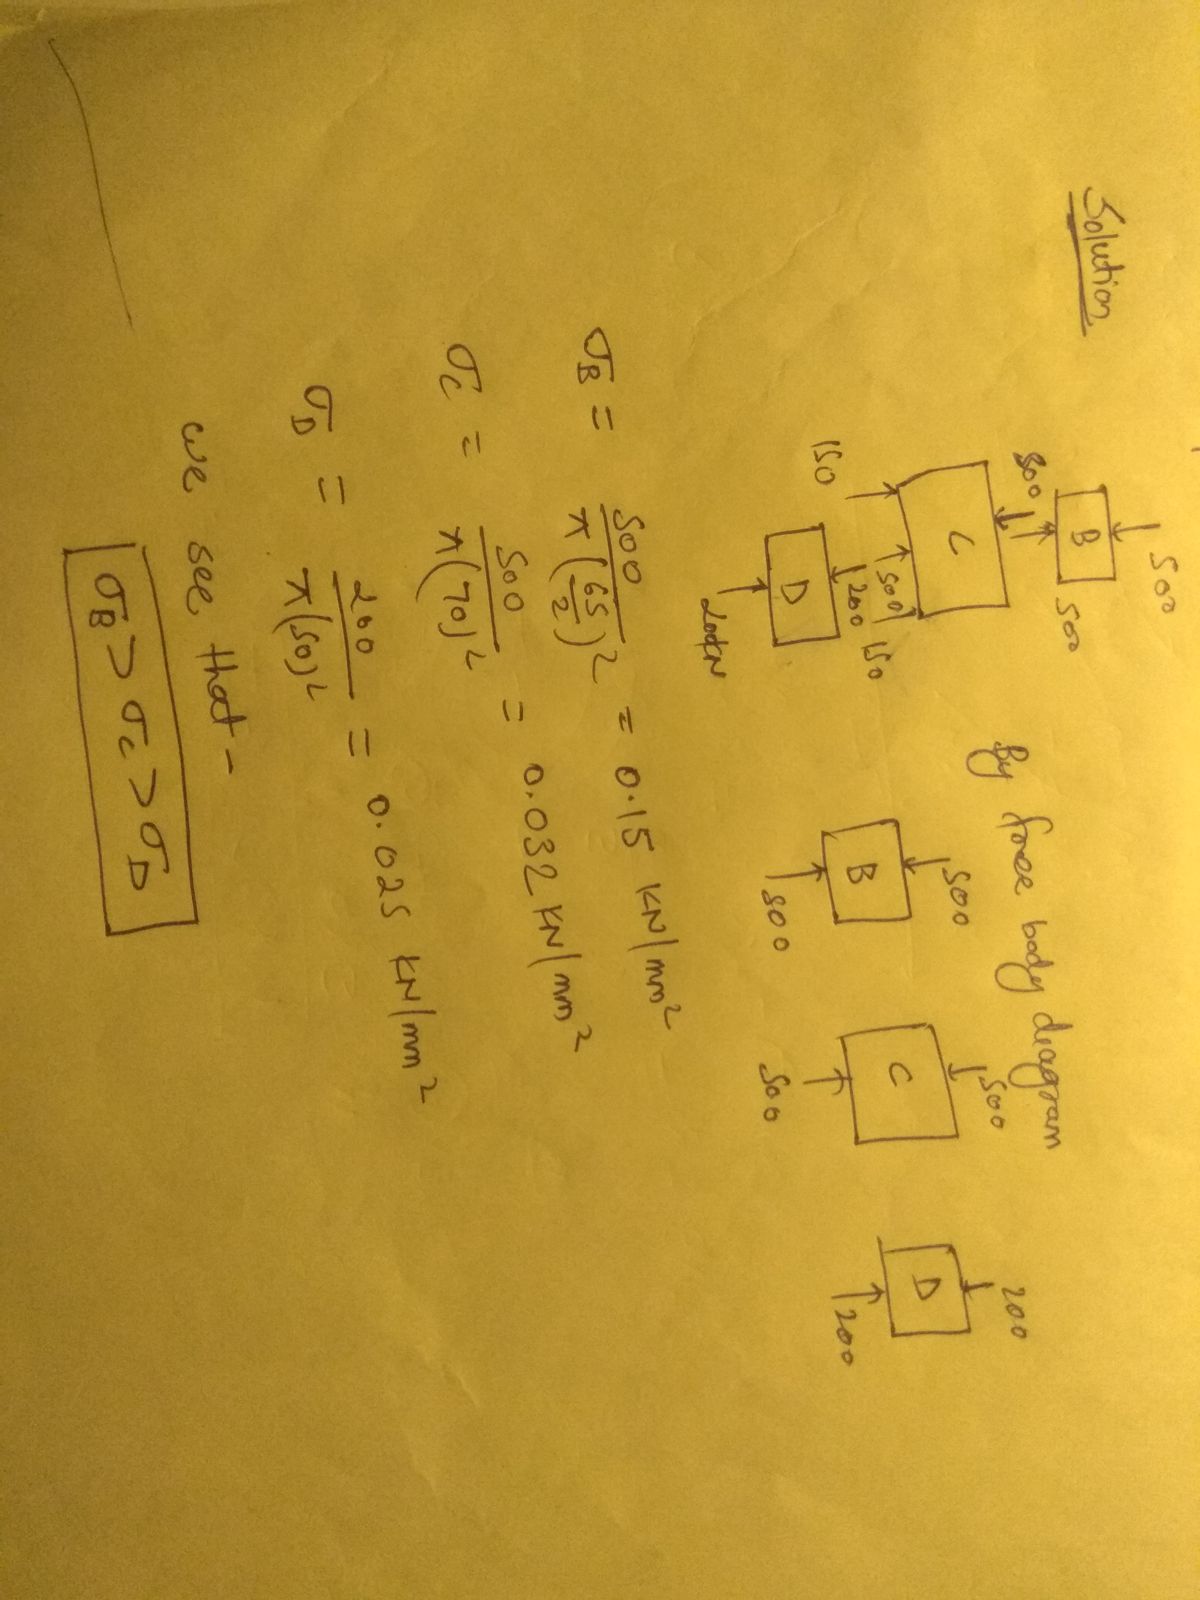 Solution
500
B
500
500
C
150
500
150
200
D
200kN
By free body diagram
500
B
500
500
C
500
200
D
200
σB = 500 / π(65/2)2 = 0.15 KN/mm2
σC = 500 / π(70)2 = 0.032 KN/mm2
σD = 200 / π(50)2 = 0.025 KN/mm2
we see that -
σB > σC > σD